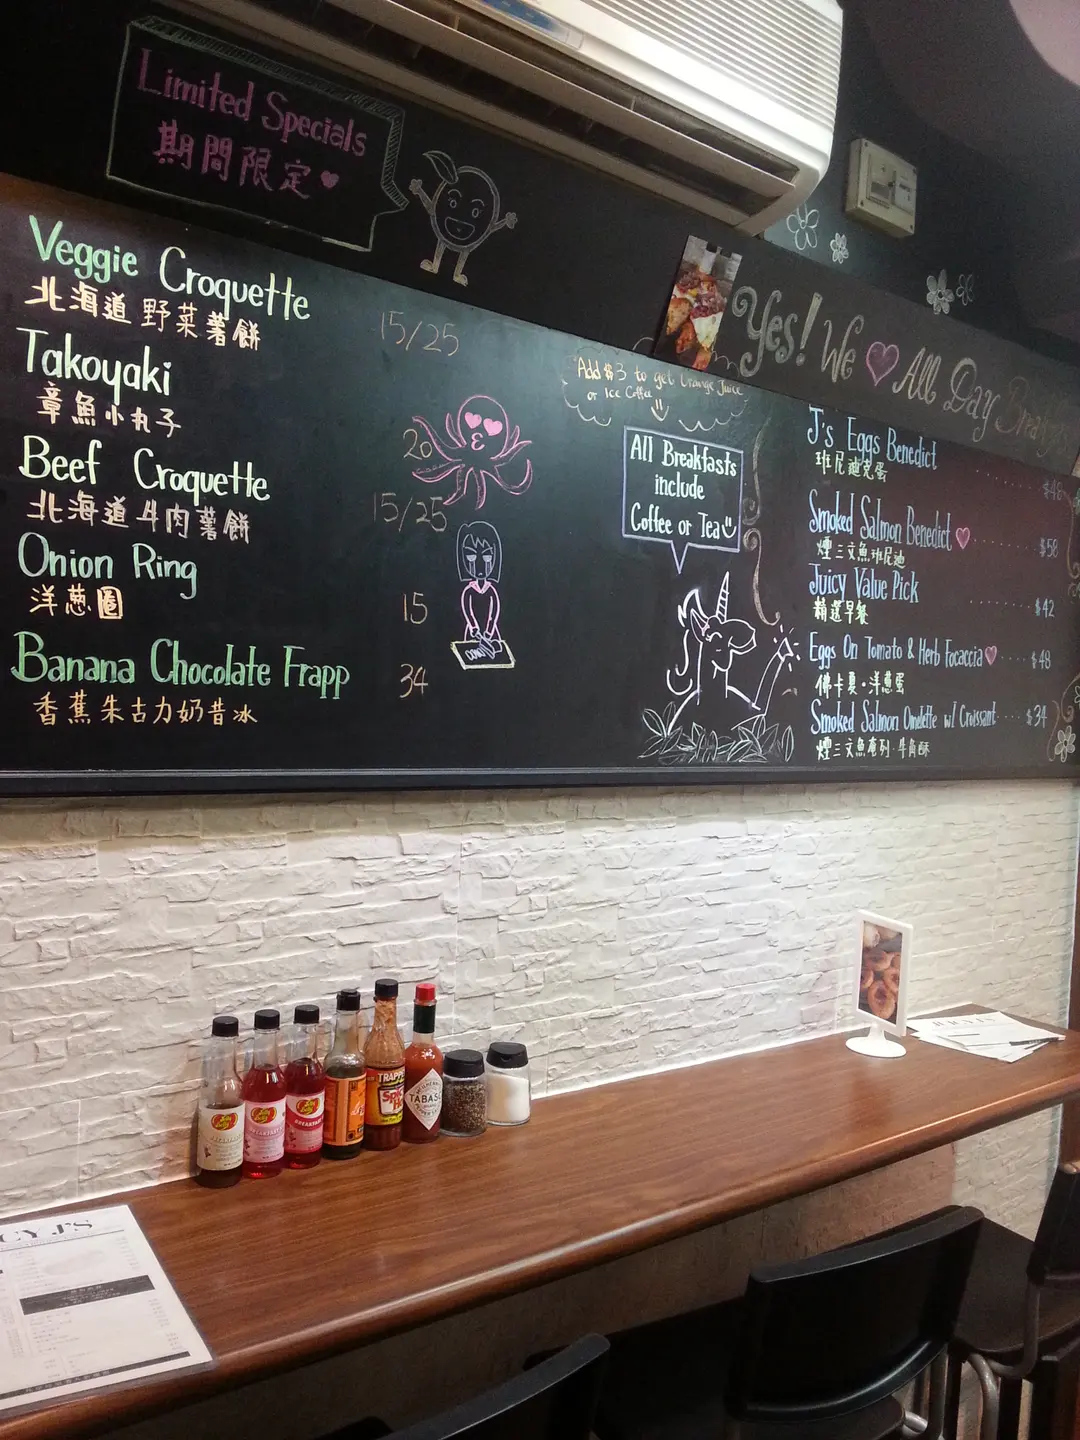 Limited Specials
期間限定♥
Veggie Croquette 15/25
北海道野菜薯餅
Takoyaki 20
章魚小丸子
Beef Croquette 15/25
北海道牛肉薯餅
Onion Ring 15
洋葱圈
Banana Chocolate Frapp 34
香蕉朱古力奶昔冰
Add $3 to get Orange Juice
or Ice Coffee
All Breakfasts
include
Coffee or Tea
Yes! We ♥ All Day Breakfast
J's Eggs Benedict
班尼迪克蛋
Smoked Salmon Benedict♥ $58
煙三文魚班尼迪
Juicy Value Pick $42
精選早餐
Eggs On Tomato & Herb Focaccia♥ $48
佛卡夏·洋蔥蛋
Smoked Salmon Omelette w/ Croissant $34
煙三文魚奄列·牛角酥
TRAPPE
TABASC
CY J'S